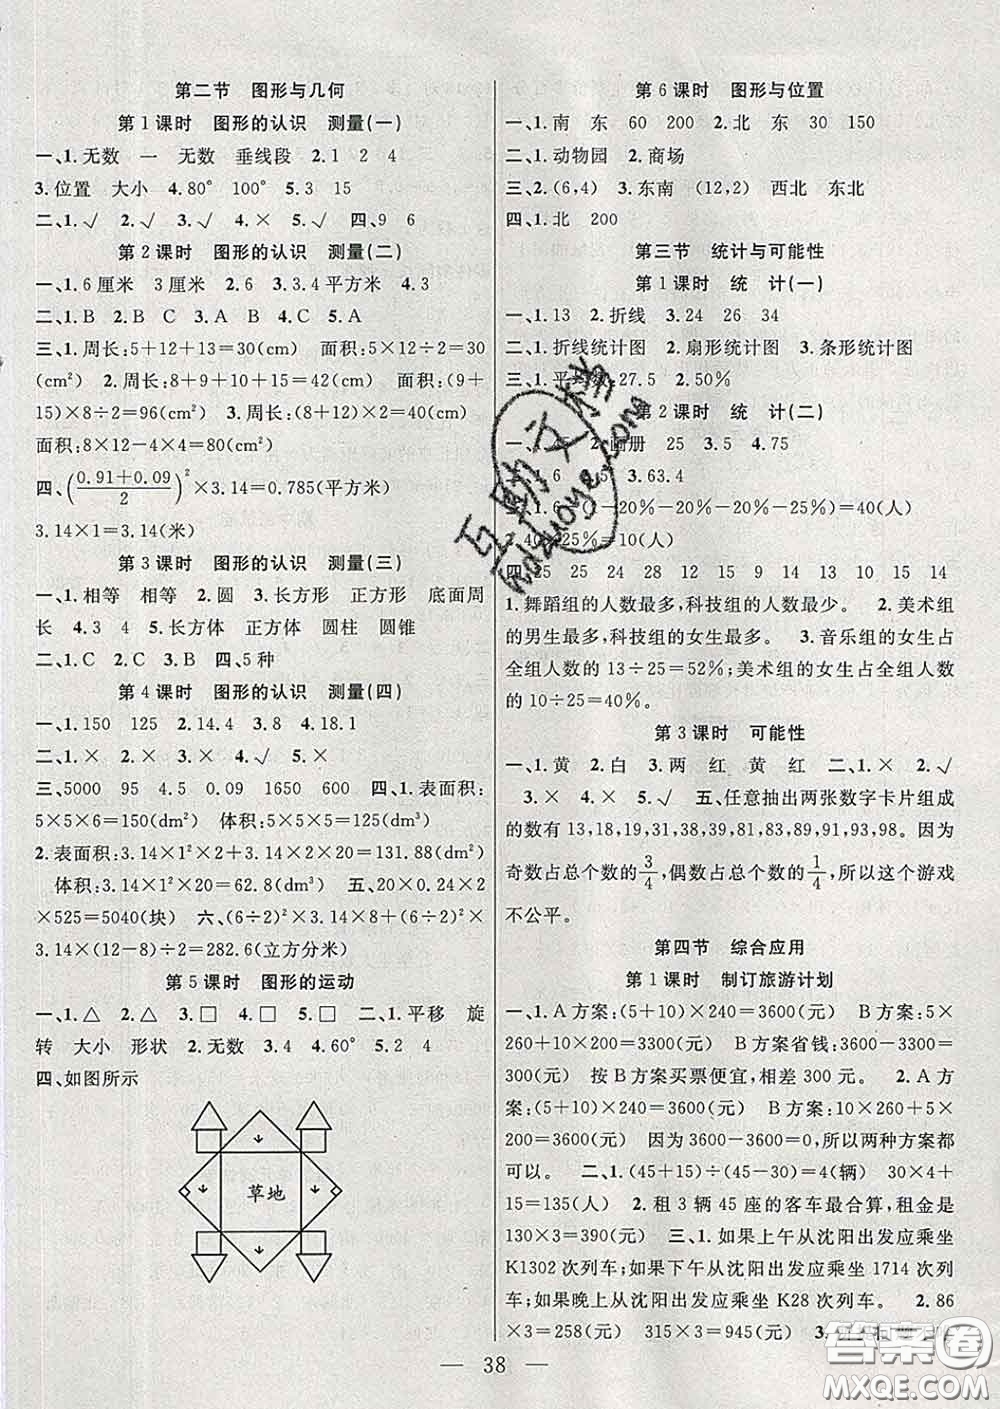 第二节 图形与几何
第1课时 图形的认识 测量(一)
一、1.无数 一 无数 垂线段 2.1 2 4
3.位置 大小 4.80° 100° 5.3 15
二、1.√ 2.√ 3.√ 4.× 5.√ 四、9 6
第2课时 图形的认识 测量(二)
一、1.6厘米 3厘米 2.6 3.3.4平方米 4.3
二、1.B B 2.B C 3.A B 4.B 5.A
三、1.周长:5+12+13=30(cm) 面积:5×12÷2=30
(cm²) 2.周长:8+9+10+15=42(cm) 面积:(9+
15)×8÷2=96(cm²) 3.周长:(8+12)×2=40(cm)
面积:8×12-4×4=80(cm²)
四、((0.91+0.09)/2)²×3.14=0.785(平方米)
3.14×1=3.14(米)
第3课时 图形的认识 测量(三)
一、1.相等 相等 2.圆 3.长方形 正方形 底面周
长 4.3 4 5.长方体 正方体 圆柱 圆锥
二、1.C 2.C 3.B 四、5种
第4课时 图形的认识 测量(四)
一、1.150 125 2.14.4 3.8 4.18.1
二、1.× 2.× 3.× 4.√ 5.×
三、5000 95 4.5 0.09 1650 600 四、1.表面积:
5×5×6=150(dm²) 体积:5×5×5=125(dm³)
2.表面积:3.14×1²×2+3.14×2×1×20=131.88(dm²)
体积:3.14×1²×20=62.8(dm³) 五、20×0.24×2
×525=5040(块) 六、(6÷2)²×3.14×8+(6÷2)²×
3.14×(12-8)÷2=282.6(立方分米)
第5课时 图形的运动
一、1.△ 2.△ 3.□ 4.□ 5.□ 二、1.平移 旋
转 大小 形状 2.无数 3.4 4.60° 5.2 4
四、如图所示
草地
第6课时 图形与位置
一、1.南 东 60 200 2.北 东 30 150
二、1.动物园 2.商场
三、2.(6,4) 3.东南 (12,2) 西北 东北
四、1.北 200
第三节 统计与可能性
第1课时 统 计(一)
一、1.13 2.折线 3.24 26 34
二、1.折线统计图 2.扇形统计图 3.条形统计图
三、1.平均数:27.5 2.50%
第2课时 统 计(二)
一、 2.画册 25 3.5 4.75
二、1.6 3.63.4
三、1. -20%-20%-20%-25%)=40(人)
2.40×25%=10(人)
四、25 25 24 28 12 15 10 15 14
1.舞蹈组的人数最多,科技组的人数最少。 2.美术组
的男生最多,科技组的女生最多。 3.音乐组的女生占
全组人数的13÷25=52%;美术组的女生占全组人数
的10÷25=40%。
第3课时 可能性
一、1.黄 2.白 3.两 红 黄 红 二、1.× 2.√
3.× 4.× 5.√ 五、任意抽出两张数字卡片组成
的数有13,18,19,31,38,39,81,83,89,91,93,98。因为
奇数占总个数的3/4,偶数占总个数的1/4,所以这个游戏
不公平。
第四节 综合应用
第1课时 制订旅游计划
一、1.A方案:(5+10)×240=3600(元) B方案:5×
260+10×200=3300(元) B方案省钱:3600-3300=
300(元) 按B方案买票便宜,相差300元。 2.A方
案:(5+10)×240=3600(元) B方案:10×260+5×
200=3600(元) 因为3600-3600=0,所以两种方案都
可以。 二、1.(45+15)÷(45-30)=4(辆) 30×4+
15=135(人) 2.租3辆45座的客车最合算,租金是
130×3=390(元) 三、1.如果上午从沈阳出发应乘坐
K1302次列车;如果下午从沈阳出发应乘坐1714次列
车;如果晚上从沈阳出发应乘坐K28次列车。 2.86
×3=258(元) 315×3=945(元) 3.
38
互助文档
hdzuoye.com
答案圈
MXQE.COM